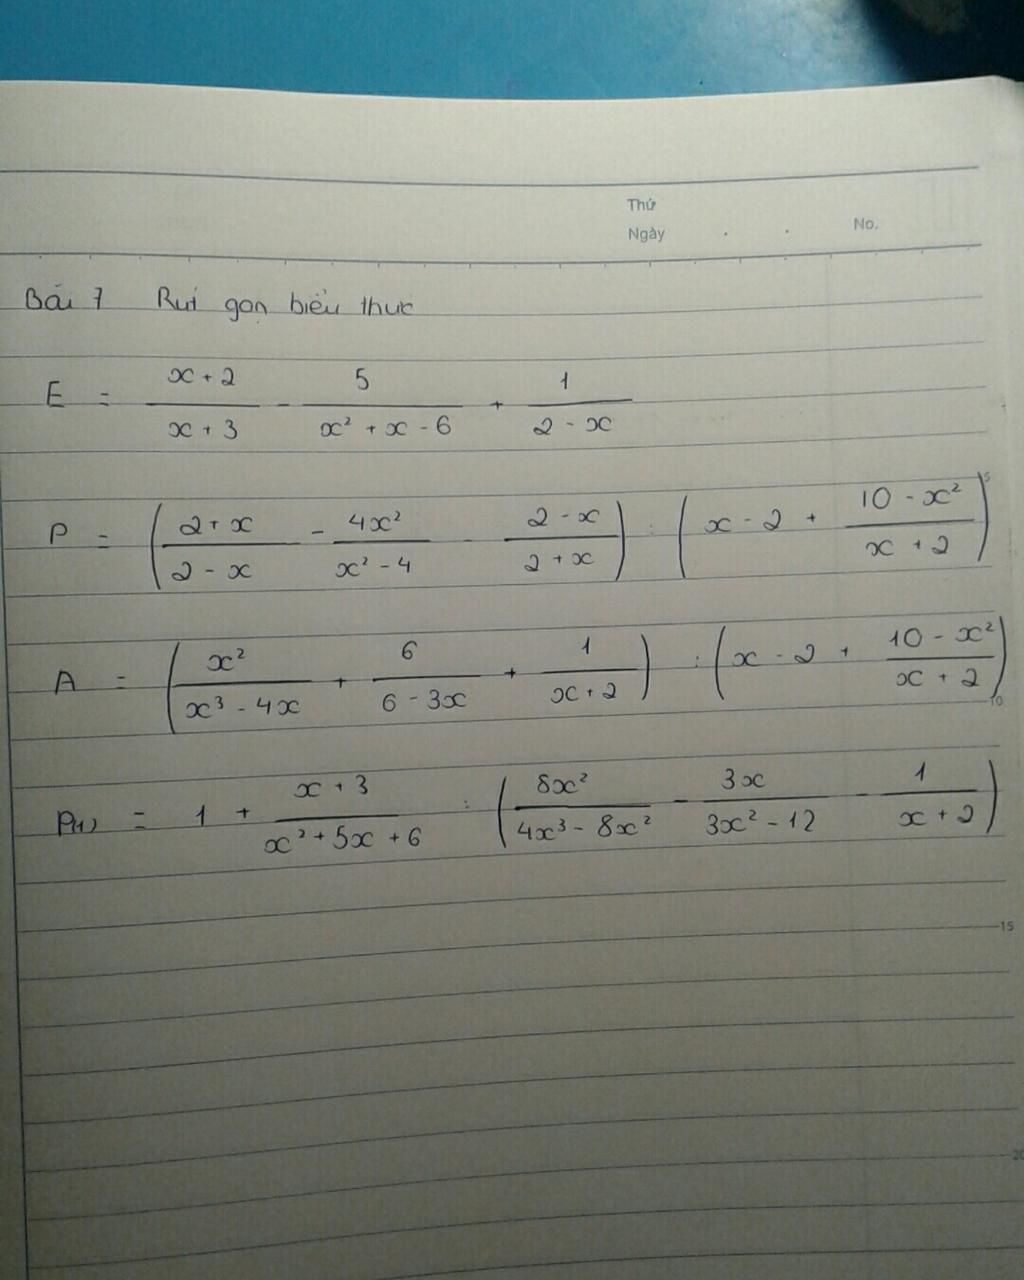 Thứ
Ngày . . No.
Bài 7 Rút gọn biểu thức
E = \frac{x+2}{x+3} - \frac{5}{x² + x - 6} + \frac{1}{2-x}
P = (\frac{2+x}{2-x} - \frac{4x²}{x²-4} - \frac{2-x}{2+x}) : (x-2 + \frac{10-x²}{x+2})
5
A = (\frac{x²}{x³-4x} + \frac{6}{6-3x} + \frac{1}{x+2}) : (x-2 + \frac{10-x²}{x+2})
10
P(1) = 1 + \frac{x+3}{x²+5x+6} : (\frac{8x²}{4x³-8x²} - \frac{3x}{3x²-12} - \frac{1}{x+2})
15
20